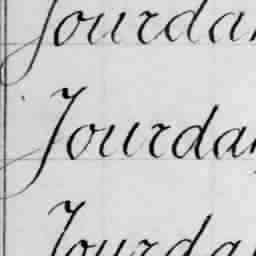 Jourda
Jourda
Jourda